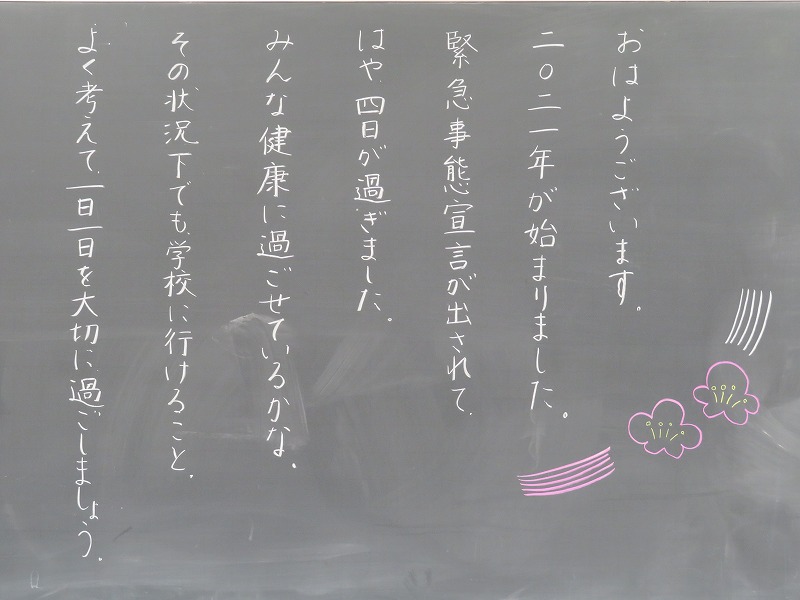 おはようございます。
二〇二一年が始まりました。
緊急事態宣言が出されて、
はや、四日が過ぎました。
みんな健康に過ごせているかな。
その状況下でも、学校に行けること、
よく考えて、一日一日を大切に過ごしましょう。